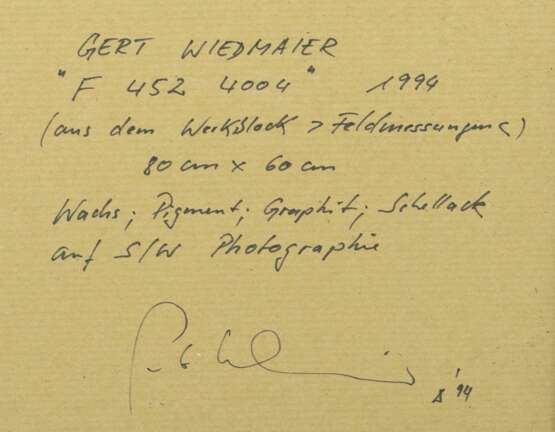 GERT WIEDMAIER
"F 452 4004" 1994
(aus dem Werkblock > Feldmessungen <)
80 cm x 60 cm
Wachs; Pigment; Graphit; Schellack
auf S/W Photographie
8'94